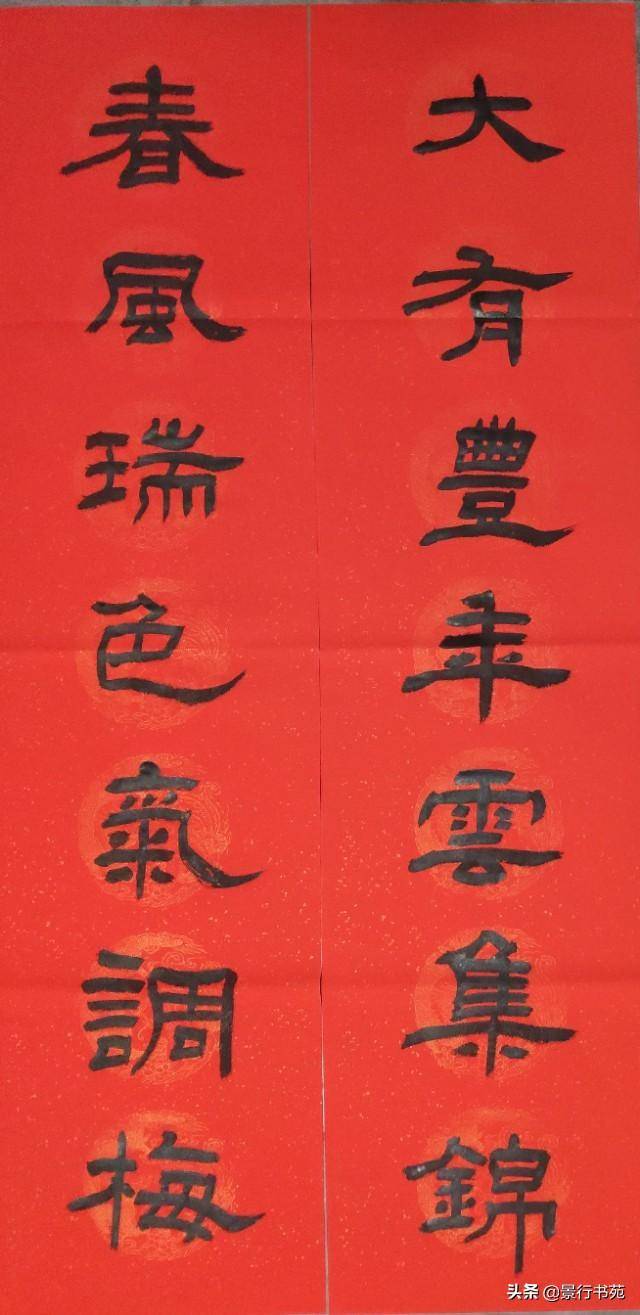 大有豐年雲集錦
春風瑞色氣調梅
头条 @景行书苑